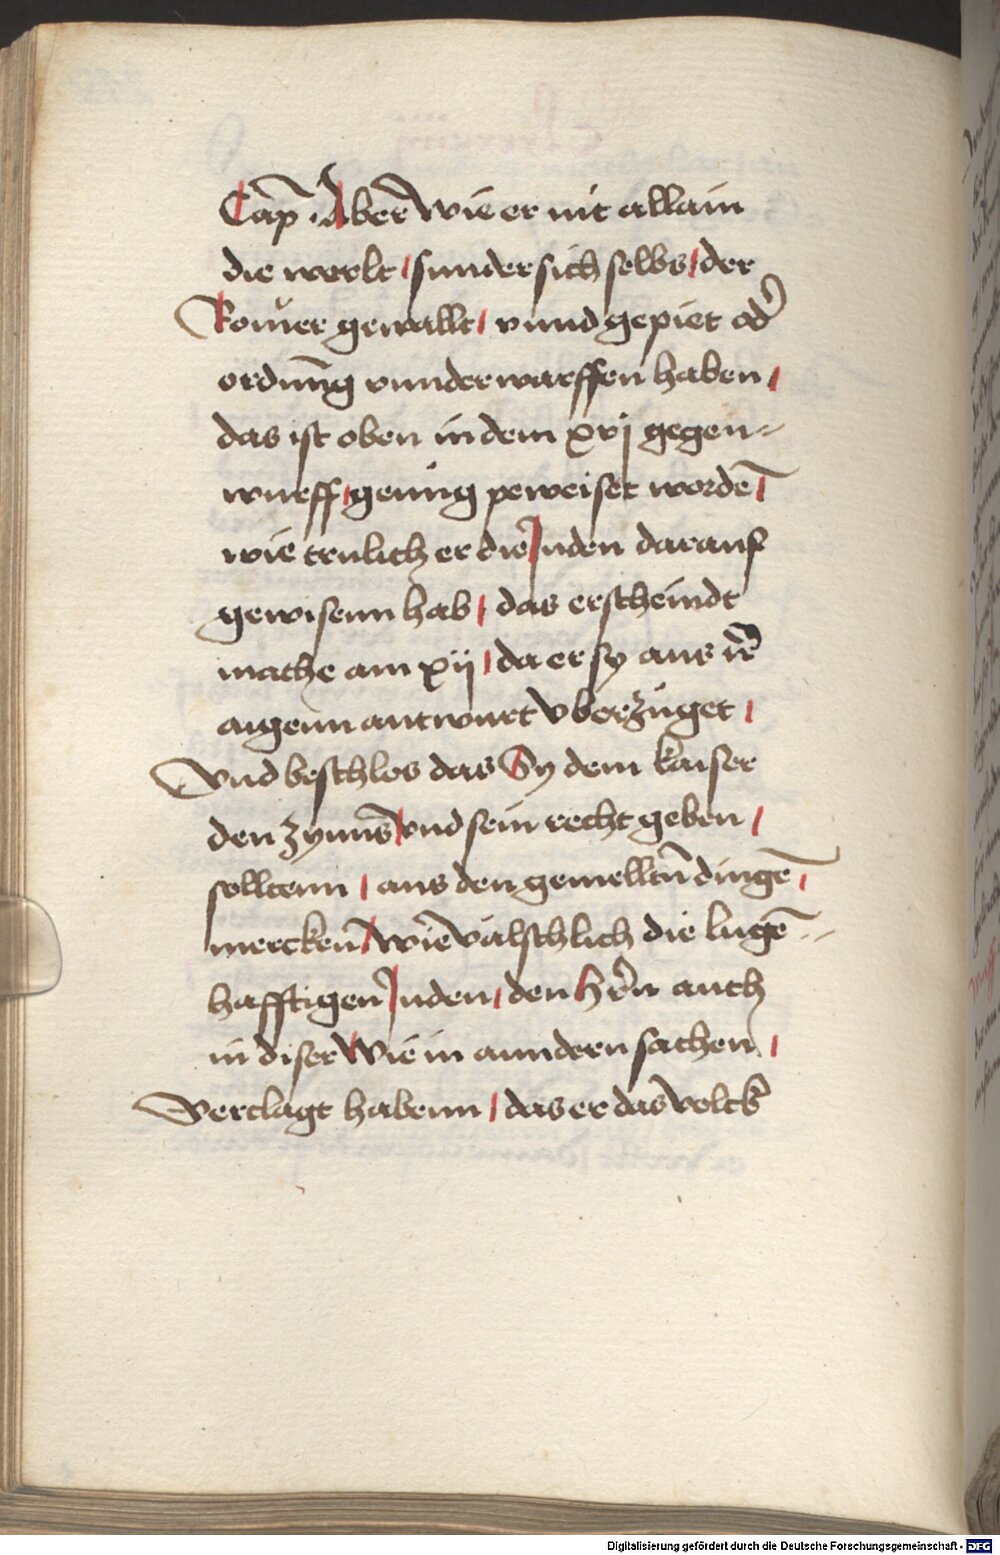 Cap̄ . Aber wie er nit allain
die werlt / sunder sich selbs / der
Romer gewallt / vnnd gepiet od'
ordnūng vnnderwarffen haben /
das ist oben in dem xvj gegen=
wurff / genug peweiset wordē /
wie trulich er die Juden darauf
gewisenn hab / das erscheindt
mathe am xij / da er sy aus ir̄
aigenn antwurt vberzuget /
Vnd beschlos das Sy dem kaiser
den zynns / vnd sein recht geben /
solltenn / aus den gemelltn̄ dingē /
mercken̄ / wie välschlich die lugē=
hafftigen Juden / den Hr̄n auch
in diser Wie in anndern sachen /
Verclagt habenn / das er das volck
Digitalisierung gefördert durch die Deutsche Forschungsgemeinschaft - DFG